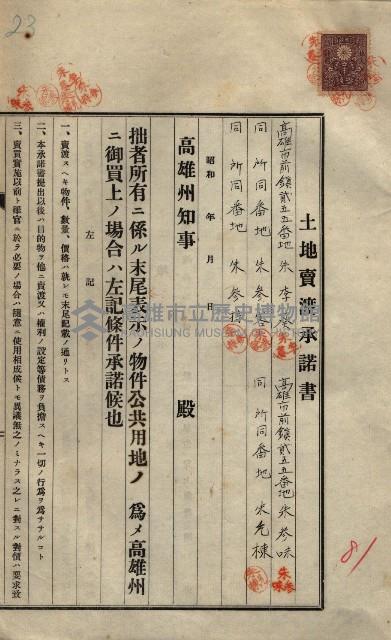 土地賣渡承諾書
高雄市前鎮貳五五番地 朱李
高雄市前鎮貳五五番地 朱參味
同所同番地 朱參
同所同番地 朱允棟
同所同番地 朱參
昭和 年 月 日
高雄州知事 殿
拙者所有ニ係ル末尾表示ノ物件公共用地ノ 爲メ高雄州
ニ御買上ノ場合ハ左記條件承諾候也
左記
一、賣渡スヘキ物件、數量、價格ハ就レモ末尾記載ノ通リトス
二、本承諾書提出以後ハ目的物ヲ他ニ賣渡又ハ權利ノ設定等債務ヲ負擔スヘキ一切ノ行爲ヲ爲ササルコト
三、賣買實施以前ト雖官ニ於テ必要ノ場合ハ隨意ニ使用相成候トモ異議無之ノミナラス之レニ對スル對價ハ要求致
23
81
高雄市立歷史博物館
MUSEUM OF HISTORY